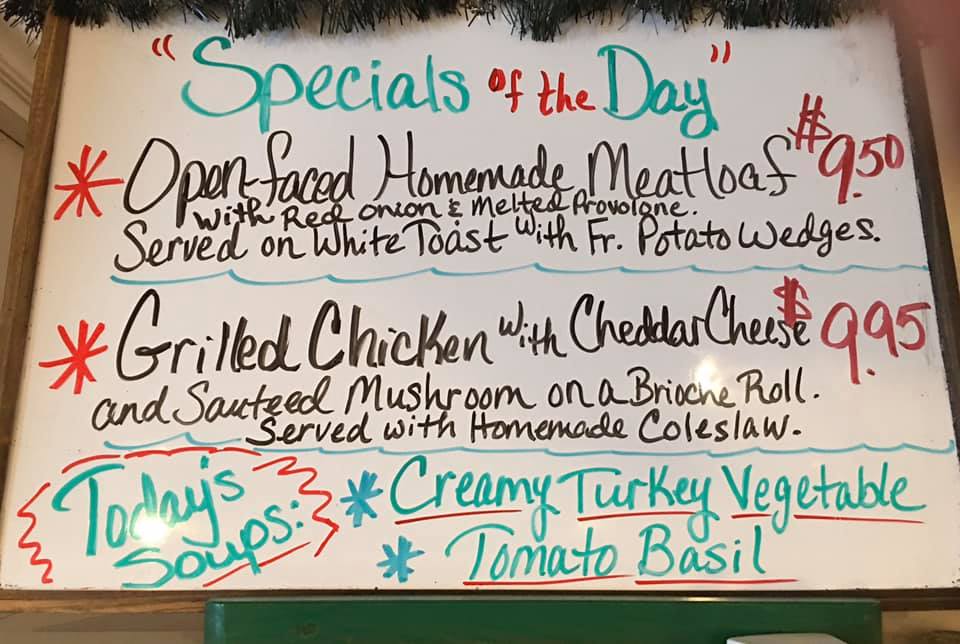 "Specials of the Day"
* Open-faced Homemade Meatloaf $9.50
with Red onion & Melted Provolone.
Served on White Toast with Fr. Potato Wedges.
* Grilled Chicken with Cheddar Cheese $9.95
and Sauteed Mushroom on a Brioche Roll.
Served with Homemade Coleslaw.
Today's
Soups:
* Creamy Turkey Vegetable
* Tomato Basil